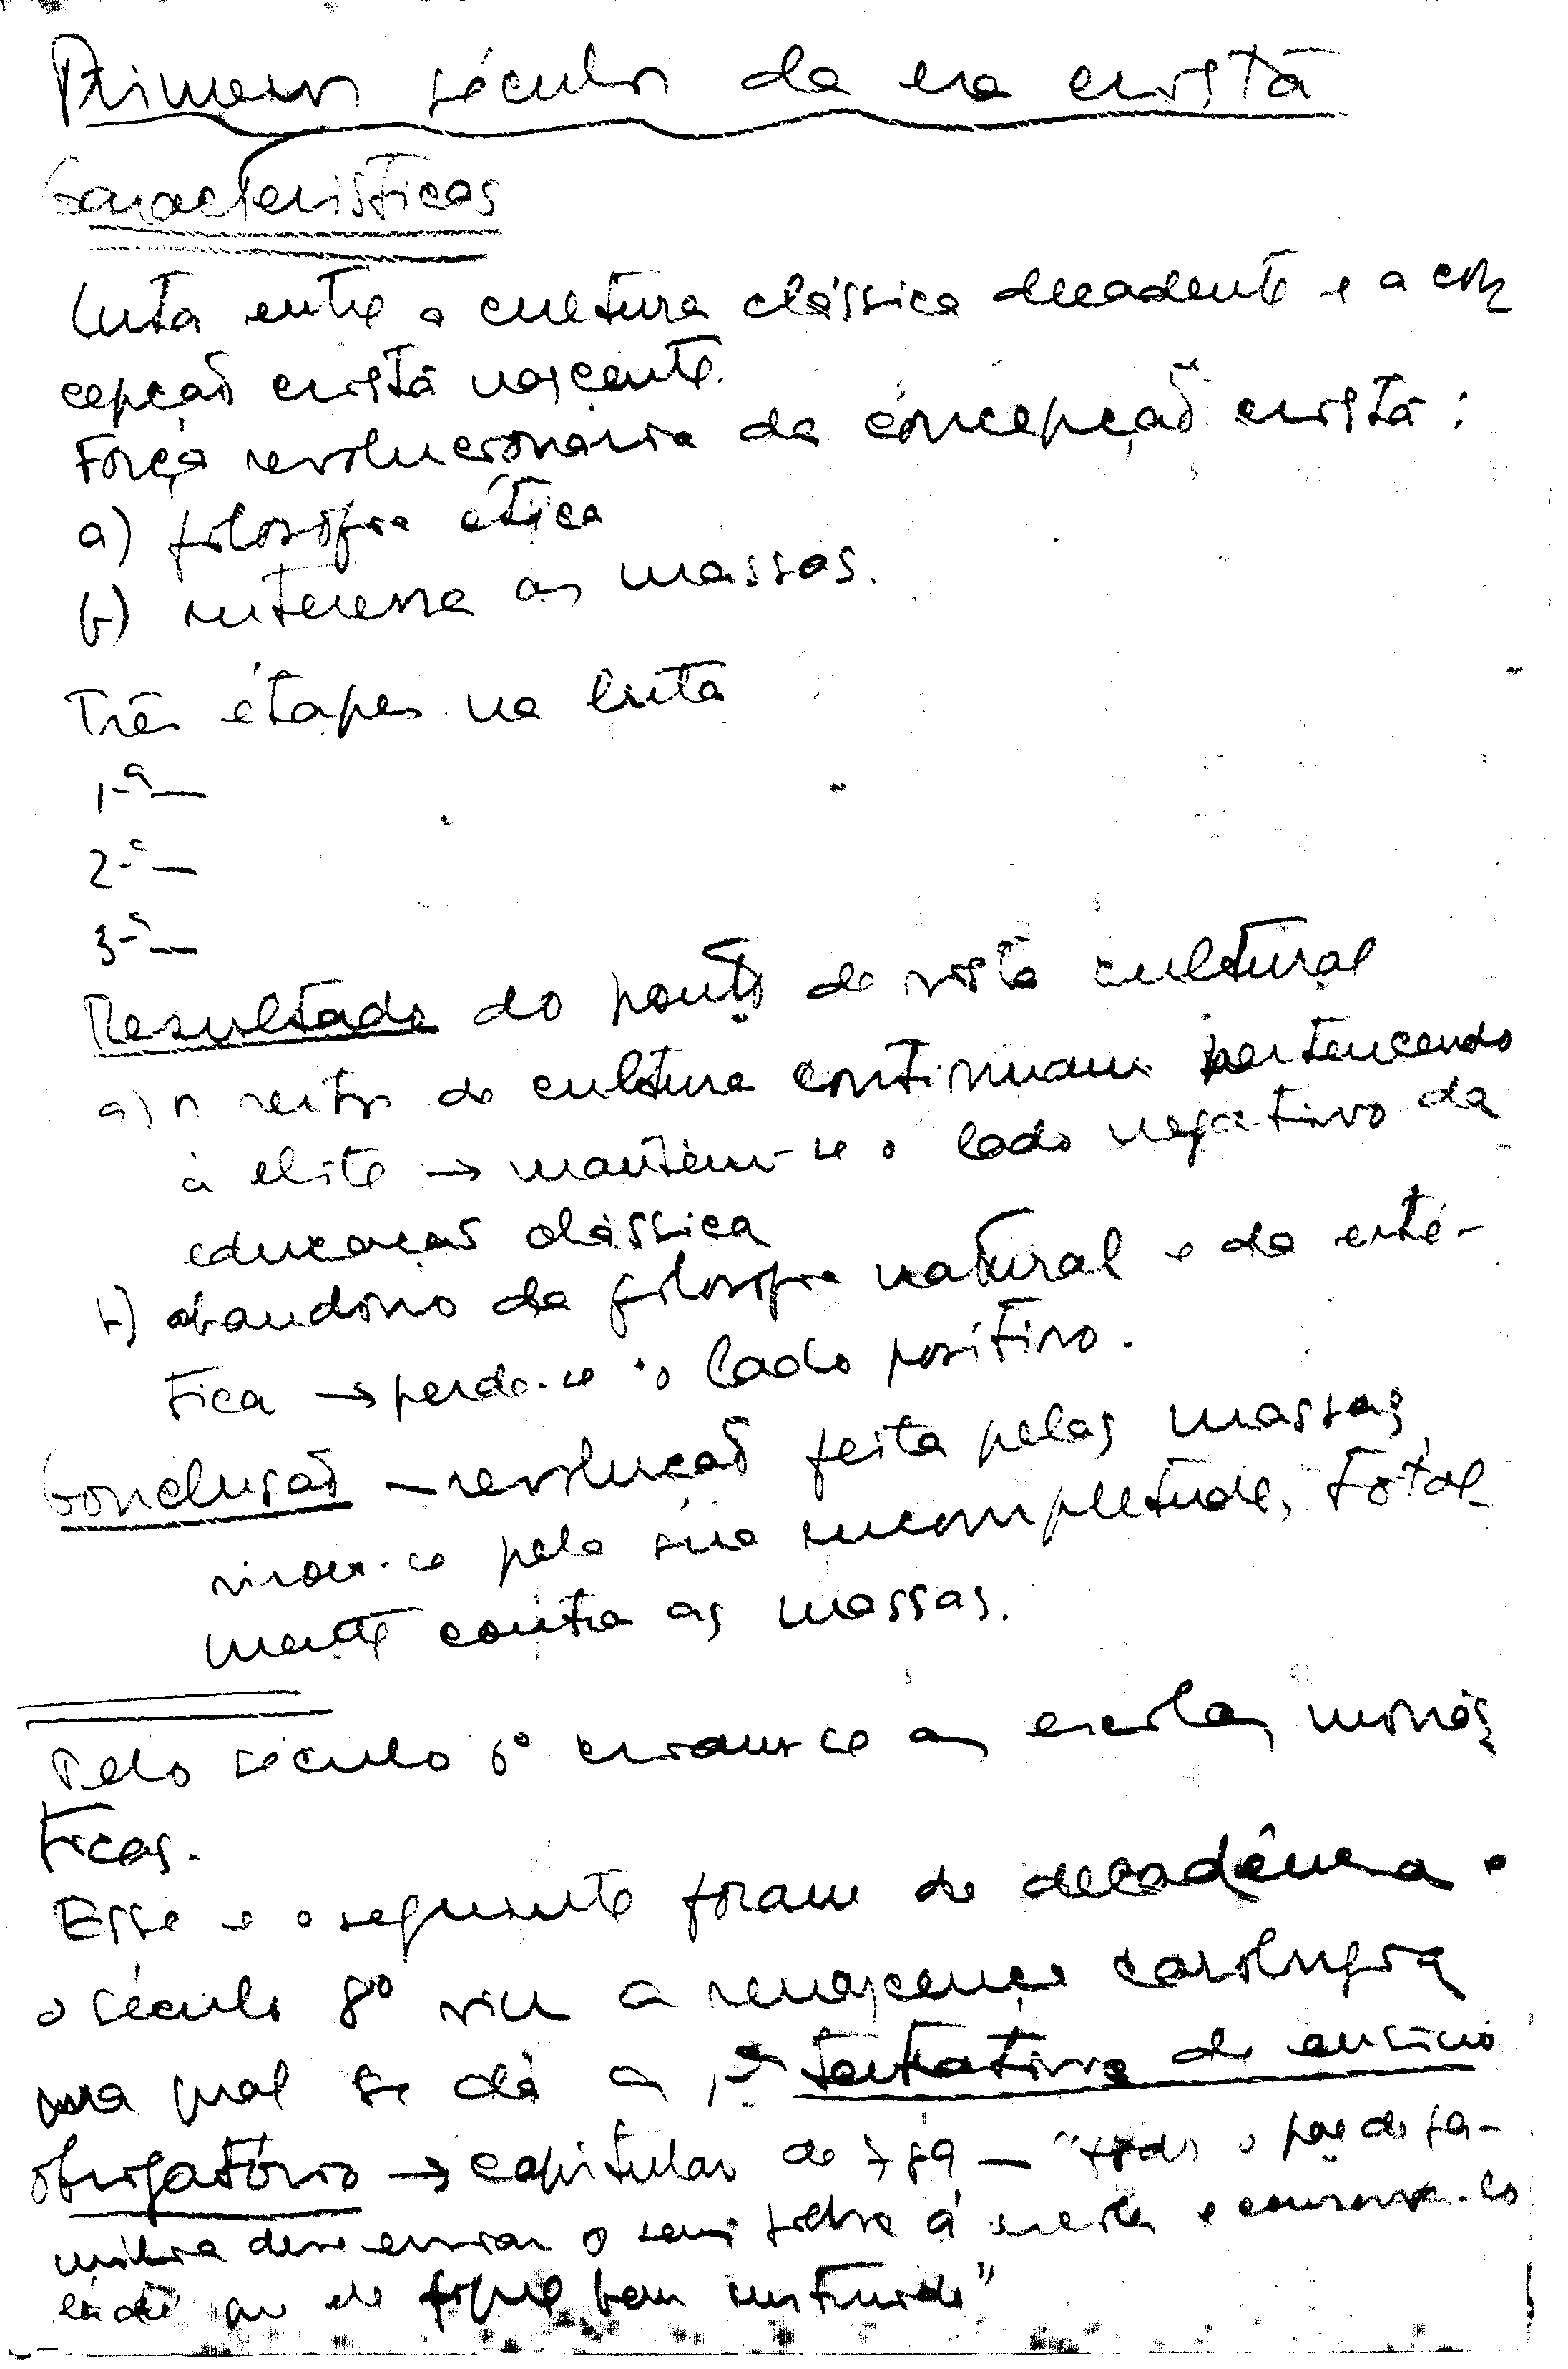 Primeiros séculos da era cristã
Características
Luta entre a cultura clássica decadente e a con
cepção cristã nascente.
Força revolucionária da concepção cristã:
a) filosofia ética
b) interessa as massas.
Três étapes na luta
1-ª—
2-ª—
3-ª—
Resultado do ponto de vista cultural
a) os restos de cultura continuam pertencendo
à elite → mantém-se o lado negativo da
educação clássica
b) abandono da filosofia natural e da esté-
tica → perde-se o lado positivo.
Conclusão — revolução feita pelas massas,
virou-se pela sua incompletude, total-
mente contra as massas.
Pelo século 6º criam-se as escolas monás
ticas.
Esse e o seguinte foram de decadência e
o século 8º viu a renascença carolíngia
na qual se dá a 1ª tentativa de ensino
obrigatório → capitular de 789 — "todo o pae de fa-
milia deve enviar o seu filho á escola e conserva-lo
lá até que ele fique bem instruido"